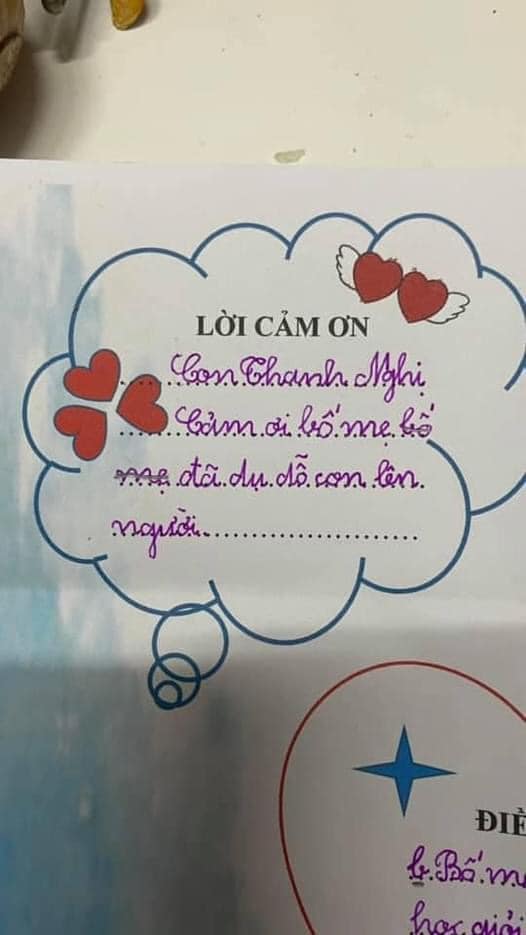 LỜI CẢM ƠN
Con Thanh Nghị
Cảm ơi bố mẹ bố
mẹ đã dụ dỗ con lên
người
ĐIỀ
b Bố mẹ
học giỏi